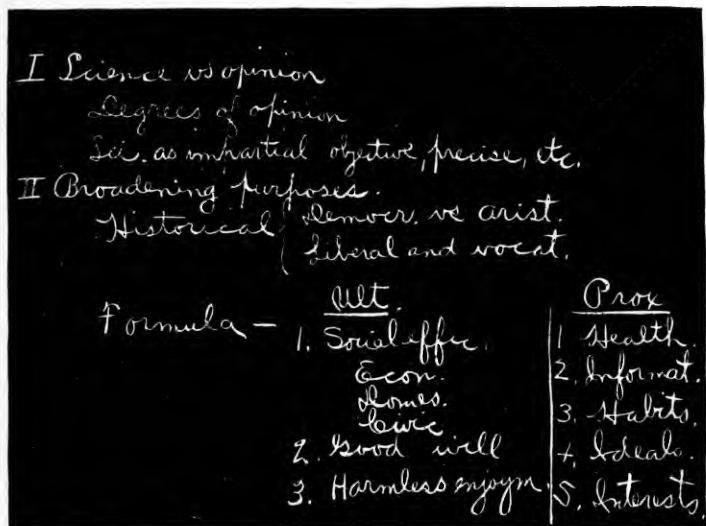 I Science vs opinion
Degrees of opinion
Sci. as impartial objective, precise, etc.
II Broadening purposes.
Historical { Democr. vs arist.
Liberal and vocat.
Formula —
Ult.
1. Social effic.
Econ.
Domes.
Civic
2. Good will
3. Harmless enjoym.
Prox
1 Health.
2. Informat.
3. Habits.
4. Ideals.
5. Interests.